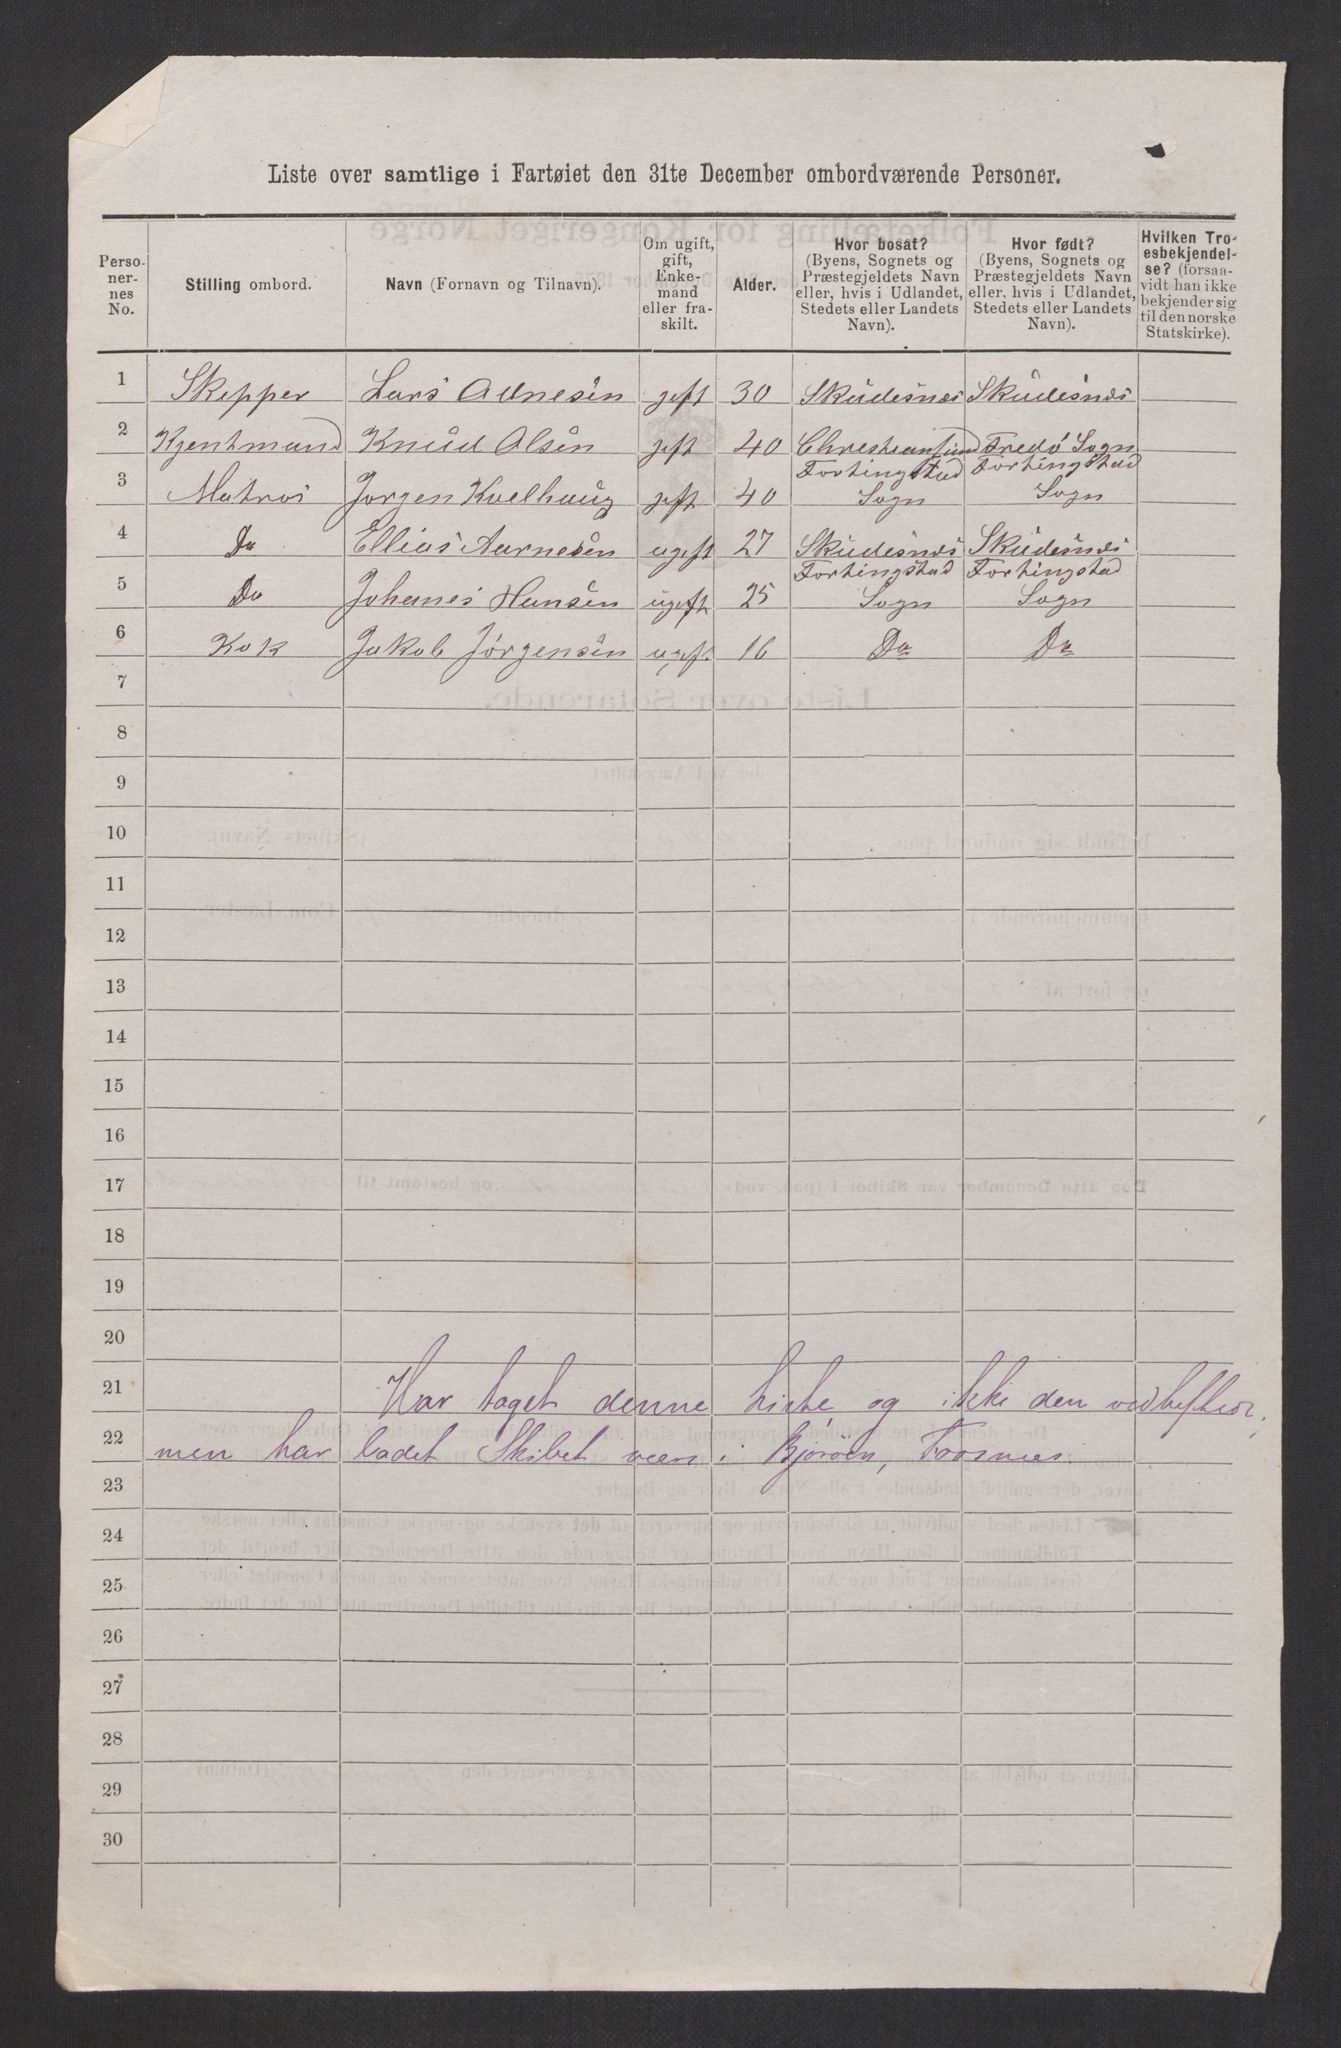 Liste over samtlige i Fartøiet den 31te December ombordværende Personer.
Personernes No. | Stilling ombord. | Navn (Fornavn og Tilnavn). | Om ugift, gift, Enkemand eller fraskilt. | Alder. | Hvor bosat? (Byens, Sognets og Præstegjeldets Navn eller, hvis i Udlandet, Stedets eller Landets Navn). | Hvor født? (Byens, Sognets og Præstegjeldets Navn eller, hvis i Udlandet, Stedets eller Landets Navn). | Hvilken Troesbekjendelse? (forsaavidt han ikke bekjender sig til den norske Statskirke).
1 Skipper Lars Adnesen gift 30 Skudesnæs Skudesnæs
2 Kjentmand Knud Olsen gift 40 Christiansund Fredø Sogn
3 Matros Jorgen Kvelhaug gift 40 Fortingstad Sogn Fortingstad Sogn
4 Do Ellias Aarnesen ugift 27 Skudesnæs Skudesnæs
5 Do Johanes Hansen ugift 25 Fortingstad Sogn Fortingstad Sogn
6 Kok Jakob Jørgensen ugift 16 Do Do
7
8
9
10
11
12
13
14
15
16
17
18
19
20
21 Har taget denne Liste og ikke den vedheftede,
22 men har ladet Skibet være i Bjørøen, Fosnæs.
23
24
25
26
27
28
29
30